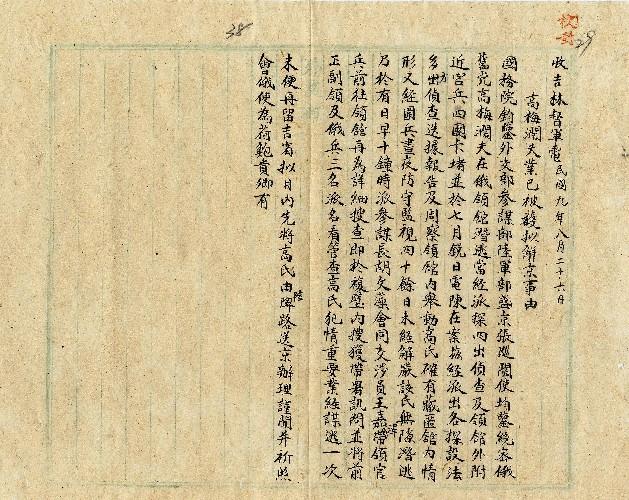 38
校對
29
收吉林督軍電民國九年八月二十六日
高梅潤夫業已被獲擬解京事由
國務院鈞鑒外交部參謀部陸軍部盛京張巡閱使均鑒統密俄
舊党高梅潤夫在俄領館潛逃當經派探四出偵查及領館外附
近宮兵西團卡堵並於七月銑日電陳在案茲經派出各探設法
多方出偵查迭據報告及周察領館內舉動高氏確有藏匿館內情
形又經團兵晝夜防守監視四十餘日未經解嚴該氏無隙潛逃
乃於有日早十鐘時派參謀長胡文藻會同交涉員王嘉澤帶領官
兵前往領館再為詳細搜查即於複壁內搜獲帶署訊問並將前
正副領及俄兵三名派名看管查高氏犯情重要業經謀逃一次
未便再留吉省擬日內先將高氏由陸路送京辦理謹聞并祈照
會俄使為荷鮑貴卿有